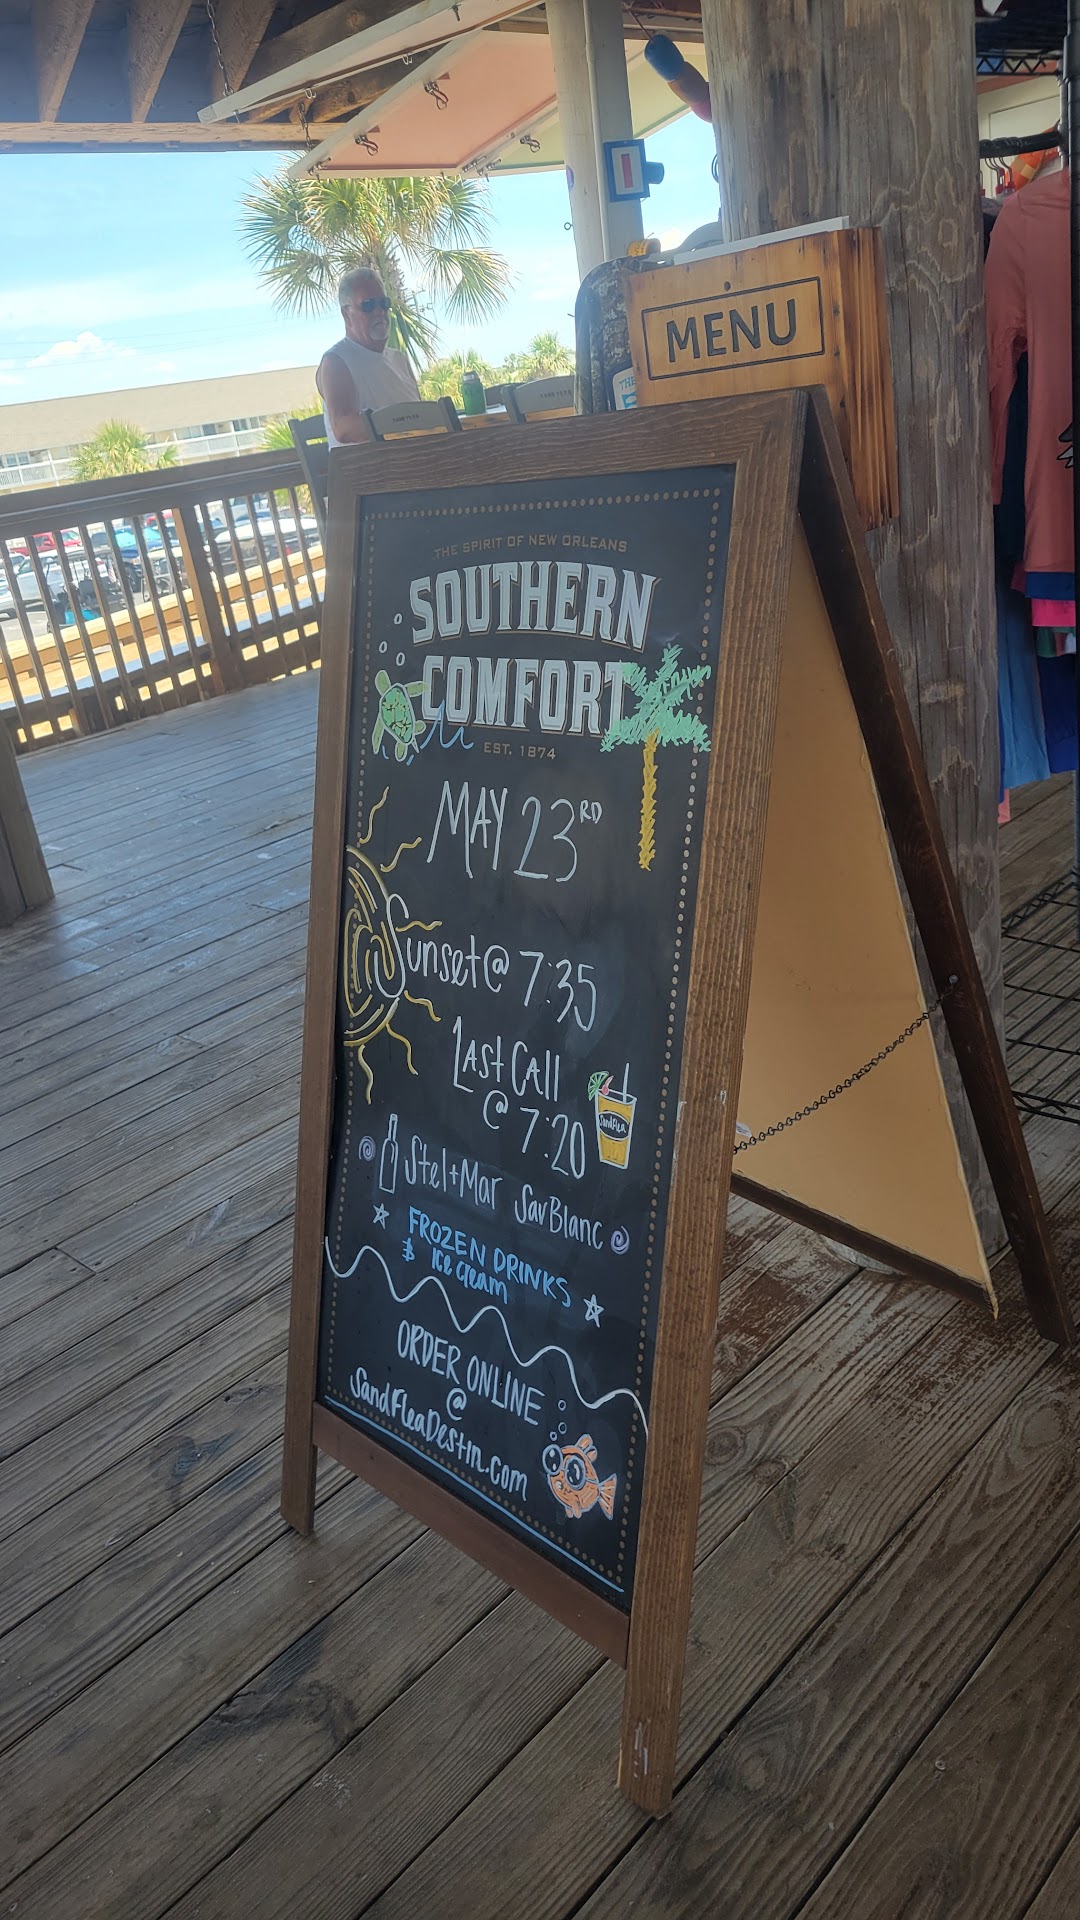 MENU
THE SPIRIT OF NEW ORLEANS
SOUTHERN
COMFORT
EST. 1874
MAY 23RD
Sunset @ 7:35
Last Call
@ 7:20
SandFlea
Stel+Mar SavBlanc
FROZEN DRINKS
& Ice cream
ORDER ONLINE
@
SandFleaDestin.com